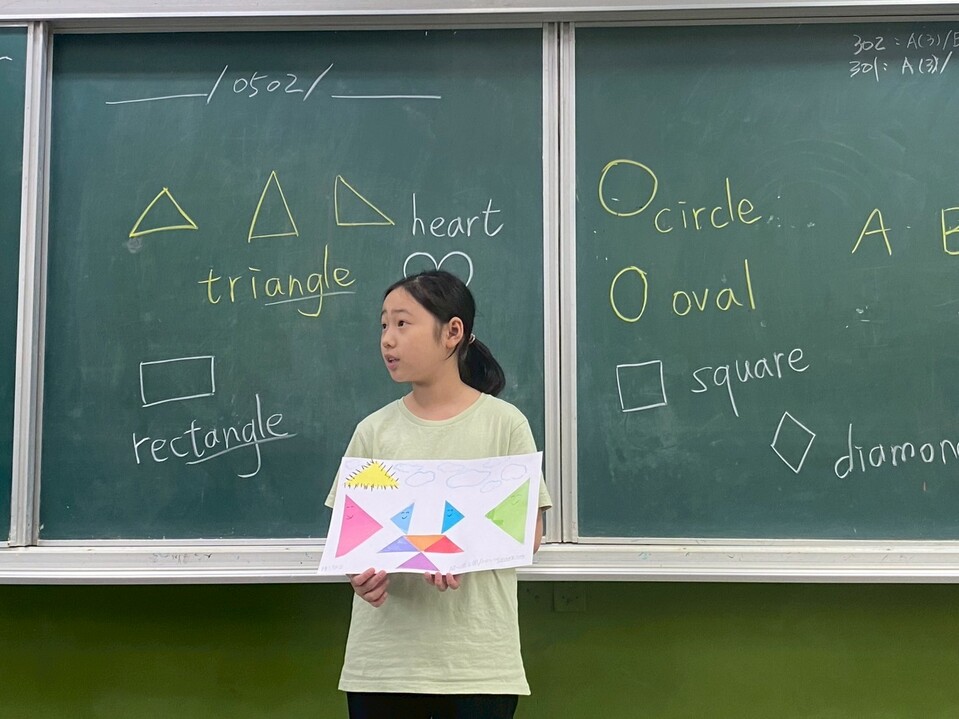 /0502/
heart
triangle
rectangle
302 : A(3)/
301 : A(3)/
circle
A
oval
square
diamon